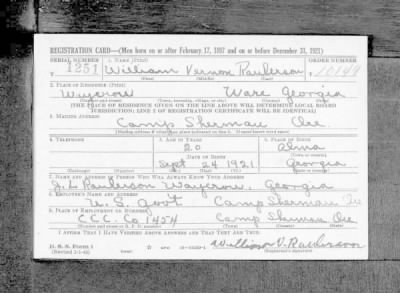 REGISTRATION CARD—(Men born on or after February 17, 1897 and on or before December 31, 1921)
SERIAL NUMBER 1. NAME (Print) ORDER NUMBER
1251 William Vernon Paulerson 10149
(First) (Middle) (Last)
2. PLACE OF RESIDENCE (Print)
Waycross Ware Georgia
(Number and street) (Town, township, village, or city) (County) (State)
[THE PLACE OF RESIDENCE GIVEN ON THE LINE ABOVE WILL DETERMINE LOCAL BOARD
JURISDICTION; LINE 2 OF REGISTRATION CERTIFICATE WILL BE IDENTICAL]
3. MAILING ADDRESS
Camp Sherman Ore.
4. TELEPHONE 5. AGE IN YEARS 6. PLACE OF BIRTH
20 Alma
DATE OF BIRTH (Town or county)
Sept 24 1921 Georgia
(Exchange) (Number) (Mo.) (Day) (Yr.) (State or country)
7. NAME AND ADDRESS OF PERSON WHO WILL ALWAYS KNOW YOUR ADDRESS
J. L. Paulerson Waycross, Georgia
8. EMPLOYER'S NAME AND ADDRESS
U.S. Govt Camp Sherman Ore
9. PLACE OF EMPLOYMENT OR BUSINESS
C.C.C. Co 1454 Camp Sherman Ore
(Number and street or R. F. D. number) (Town) (County) (State)
I AFFIRM THAT I HAVE VERIFIED ABOVE ANSWERS AND THAT THEY ARE TRUE.
D. S. S. Form 1
(Revised 1-1-42) GPO William V. Paulerson
(Registrant's signature)